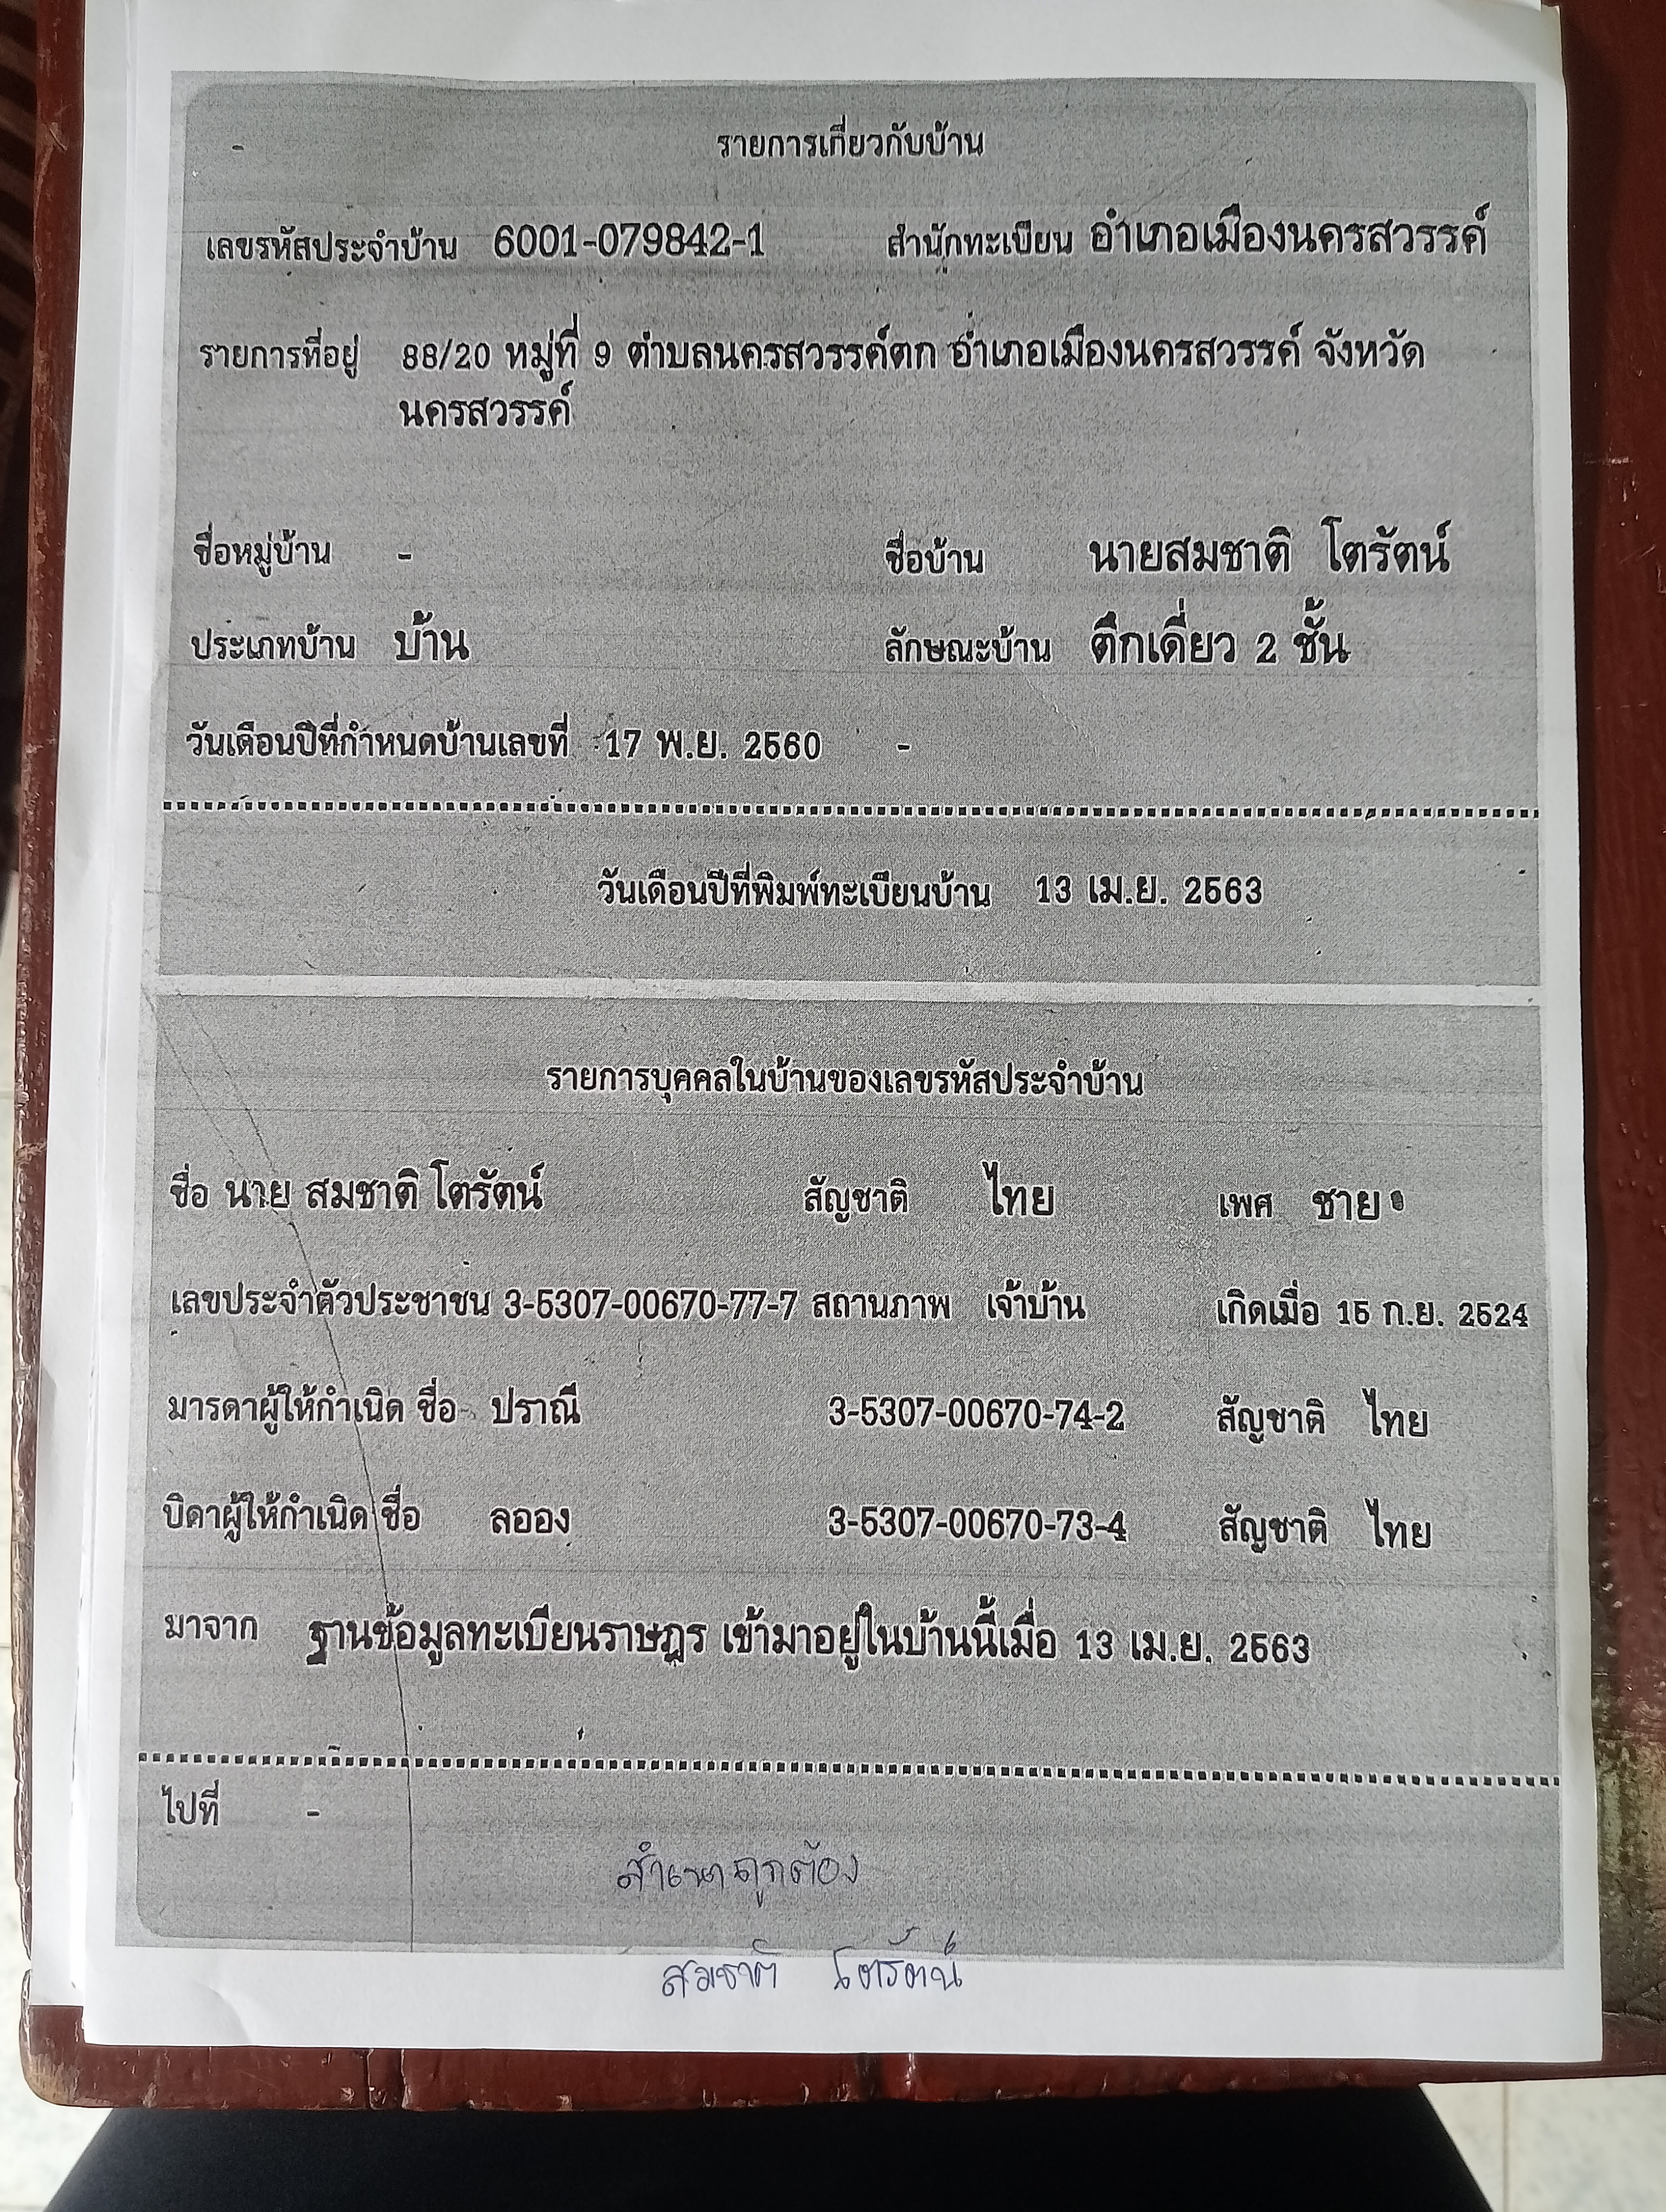 รายการเกี่ยวกับบ้าน
เลขรหัสประจำบ้าน 6001-079842-1 สำนักทะเบียน อำเภอเมืองนครสวรรค์
รายการที่อยู่ 88/20 หมู่ที่ 9 ตำบลนครสวรรค์ตก อำเภอเมืองนครสวรรค์ จังหวัด
นครสวรรค์
ชื่อหมู่บ้าน - ชื่อบ้าน นายสมชาติ โตรัตน์
ประเภทบ้าน บ้าน ลักษณะบ้าน ตึกเดี่ยว 2 ชั้น
วันเดือนปีที่กำหนดบ้านเลขที่ 17 พ.ย. 2560 -
วันเดือนปีที่พิมพ์ทะเบียนบ้าน 13 เม.ย. 2563
รายการบุคคลในบ้านของเลขรหัสประจำบ้าน
ชื่อ นาย สมชาติ โตรัตน์ สัญชาติ ไทย เพศ ชาย
เลขประจำตัวประชาชน 3-5307-00670-77-7 สถานภาพ เจ้าบ้าน เกิดเมื่อ 15 ก.ย. 2524
มารดาผู้ให้กำเนิด ชื่อ ปราณี 3-5307-00670-74-2 สัญชาติ ไทย
บิดาผู้ให้กำเนิด ชื่อ ลออง 3-5307-00670-73-4 สัญชาติ ไทย
มาจาก ฐานข้อมูลทะเบียนราษฎร เข้ามาอยู่ในบ้านนี้เมื่อ 13 เม.ย. 2563
ไปที่ -
สำเนาถูกต้อง
สมชาติ โตรัตน์